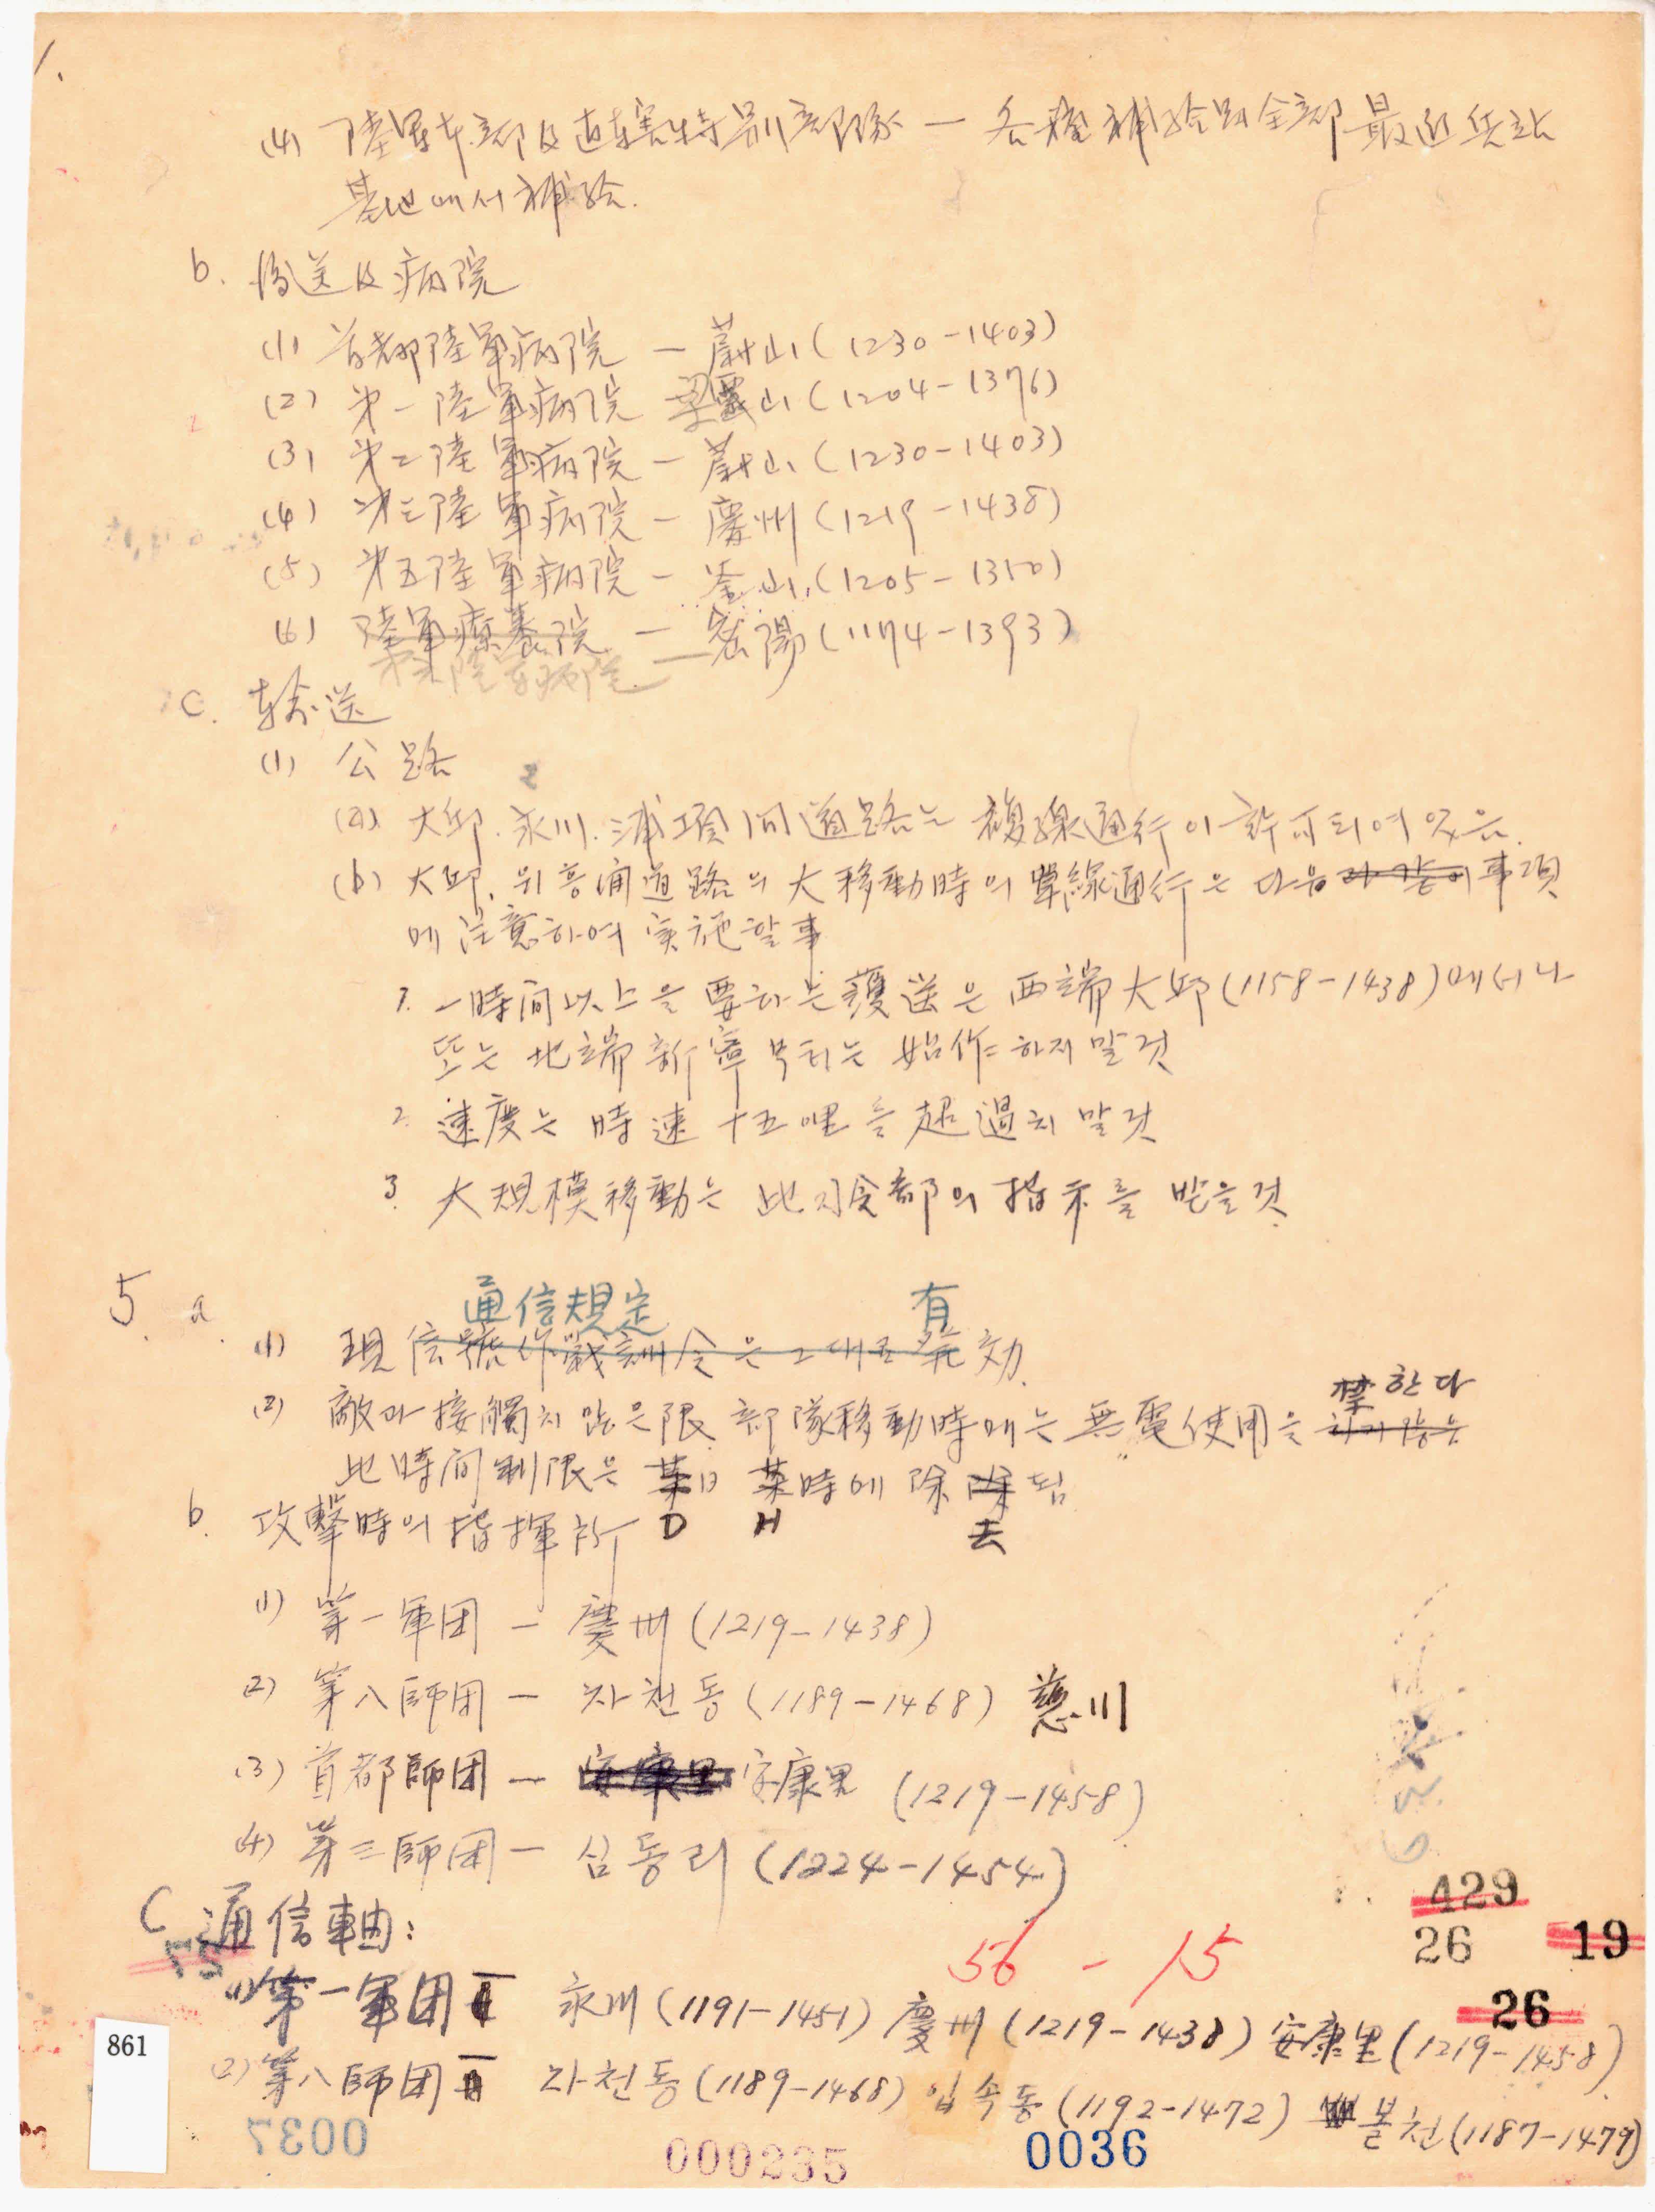 (4) 陸軍本部及直轄特別部隊 — 各種補給品全部 最近兵站
基地에서 補給.
b. 後送及病院
(1) 首都陸軍病院 — 蔚山 (1230-1403)
(2) 第一陸軍病院 梁山 (1204-1376)
(3) 第二陸軍病院 — 蔚山 (1230-1403)
(4) 第三陸軍病院 — 慶州 (1219-1438)
(5) 第五陸軍病院 — 釜山 (1205-1350)
(6) 陸軍療養院 — 密陽 (1174-1393)
陸軍病院
c. 輸送
(1) 公路
(a) 大邱. 永川. 浦項間道路는 複線通行이 許可되여 있음.
(b) 大邱. 의흥 道路의 大移動時의 單線通行은 다음과 같은이 事項
에 注意하여 実施할 事
1. 一時間以上을 要하는 護送은 西端大邱 (1158-1438)에서나
또는 北端新寧부터는 始作하지 말것
2. 速度는 時速 十五哩을 超過치 말것
3. 大規模移動는 此司令部의 指示를 받을것.
5. a. 通信規定 有
(1) 現信號作戰訓令은 그대로 発効.
(2) 敵과 接觸치 않은限 部隊移動時에는 無電使用을 禁한다
此時間制限은 某日 某時에 除 됨
D H 去
b. 攻擊時의 指揮所
(1) 第一軍団 — 慶州 (1219-1438)
(2) 第八師団 — 자천동 (1189-1468) 慈川
(3) 首都師団 — 安康里 安康里 (1219-1458)
(4) 第三師団 — 심동리 (1224-1454)
C 通信軸:
(1) 第一軍団 — 永川 (1191-1451) 慶州 (1219-1438) 安康里 (1219-1458)
(2) 第八師団 — 자천동 (1189-1468) 입석동 (1192-1472) 볼천 (1187-1479)
56 - 15
429
26 19
26
861
0037
000235
0036